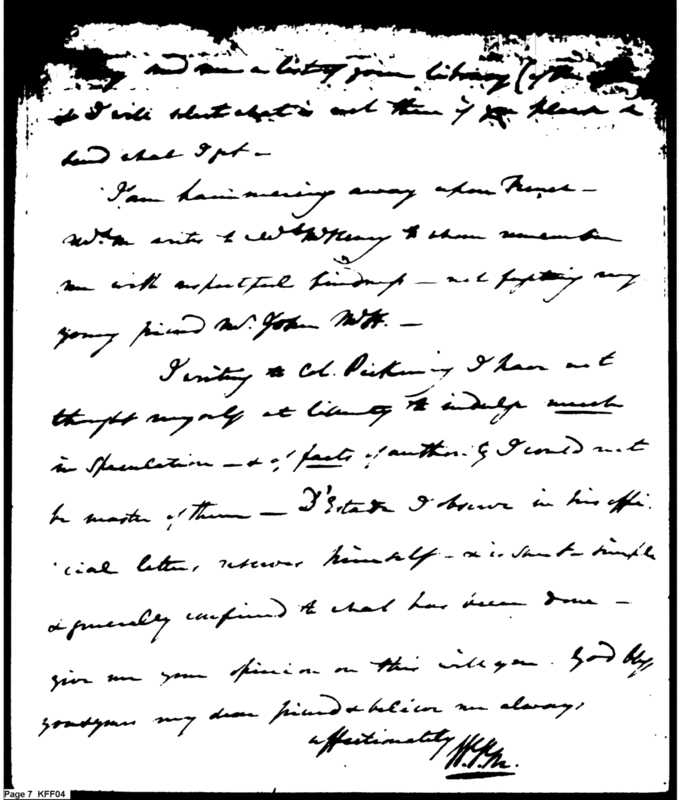 send me a list of your library (of the
& I will select what is not there if you please &
send what I get —
I am hammering away upon French —
Mrs. M writes to Mrs. McHenry to whom remember
me with respectful kindness — not forgetting my
young friend Mr. John McH. —
I writing to Col. Pickering I have not
thought myself at liberty to indulge much
in speculation — & of facts of authority I could not
be master of them — D'Estade I observe in his offi-
cial letters reserves himself — & is short — simple
& generally confined to what has been done —
give me your opinion on this will you. God bless
you & yours my dear friend & believe me always
affectionately W.S.M.
Page 7 KFF04